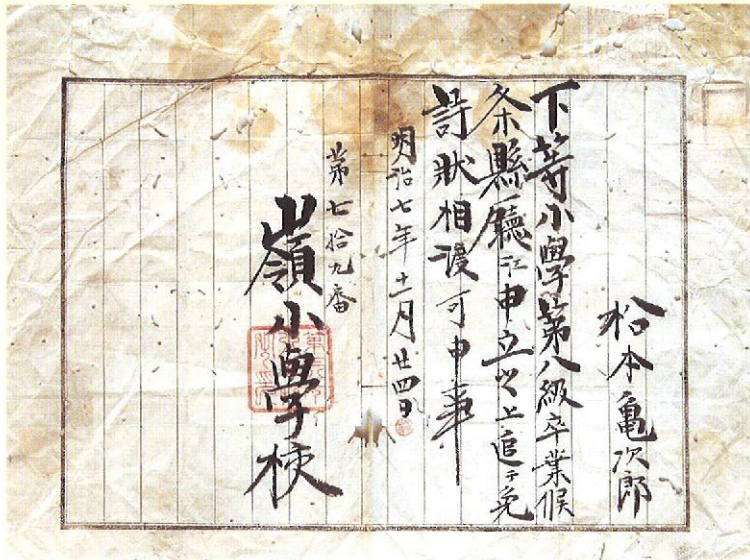 松本亀次郎
下等小學第八級卒業候
条縣廳江申立之上追テ免
許狀相渡可申事
明治七年十二月廿四日
第七拾九番
嶺小學校